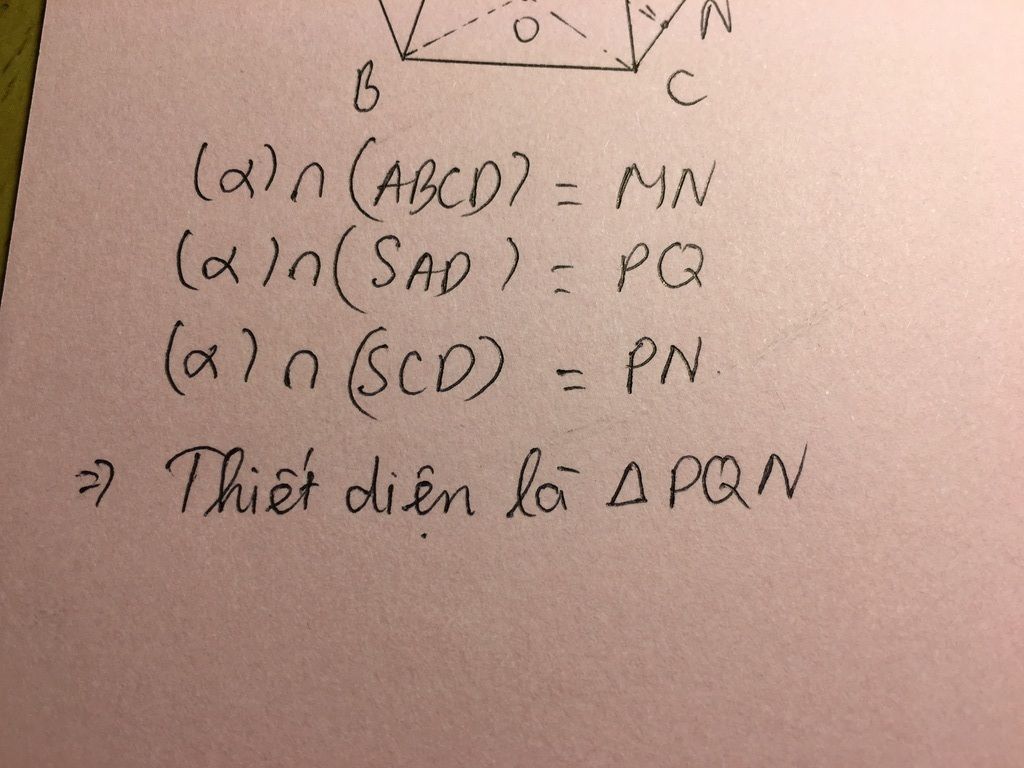 O
N
B
C
(α) ∩ (ABCD) = MN
(α) ∩ (SAD) = PQ
(α) ∩ (SCD) = PN.
⇒ Thiết diện là Δ PQN